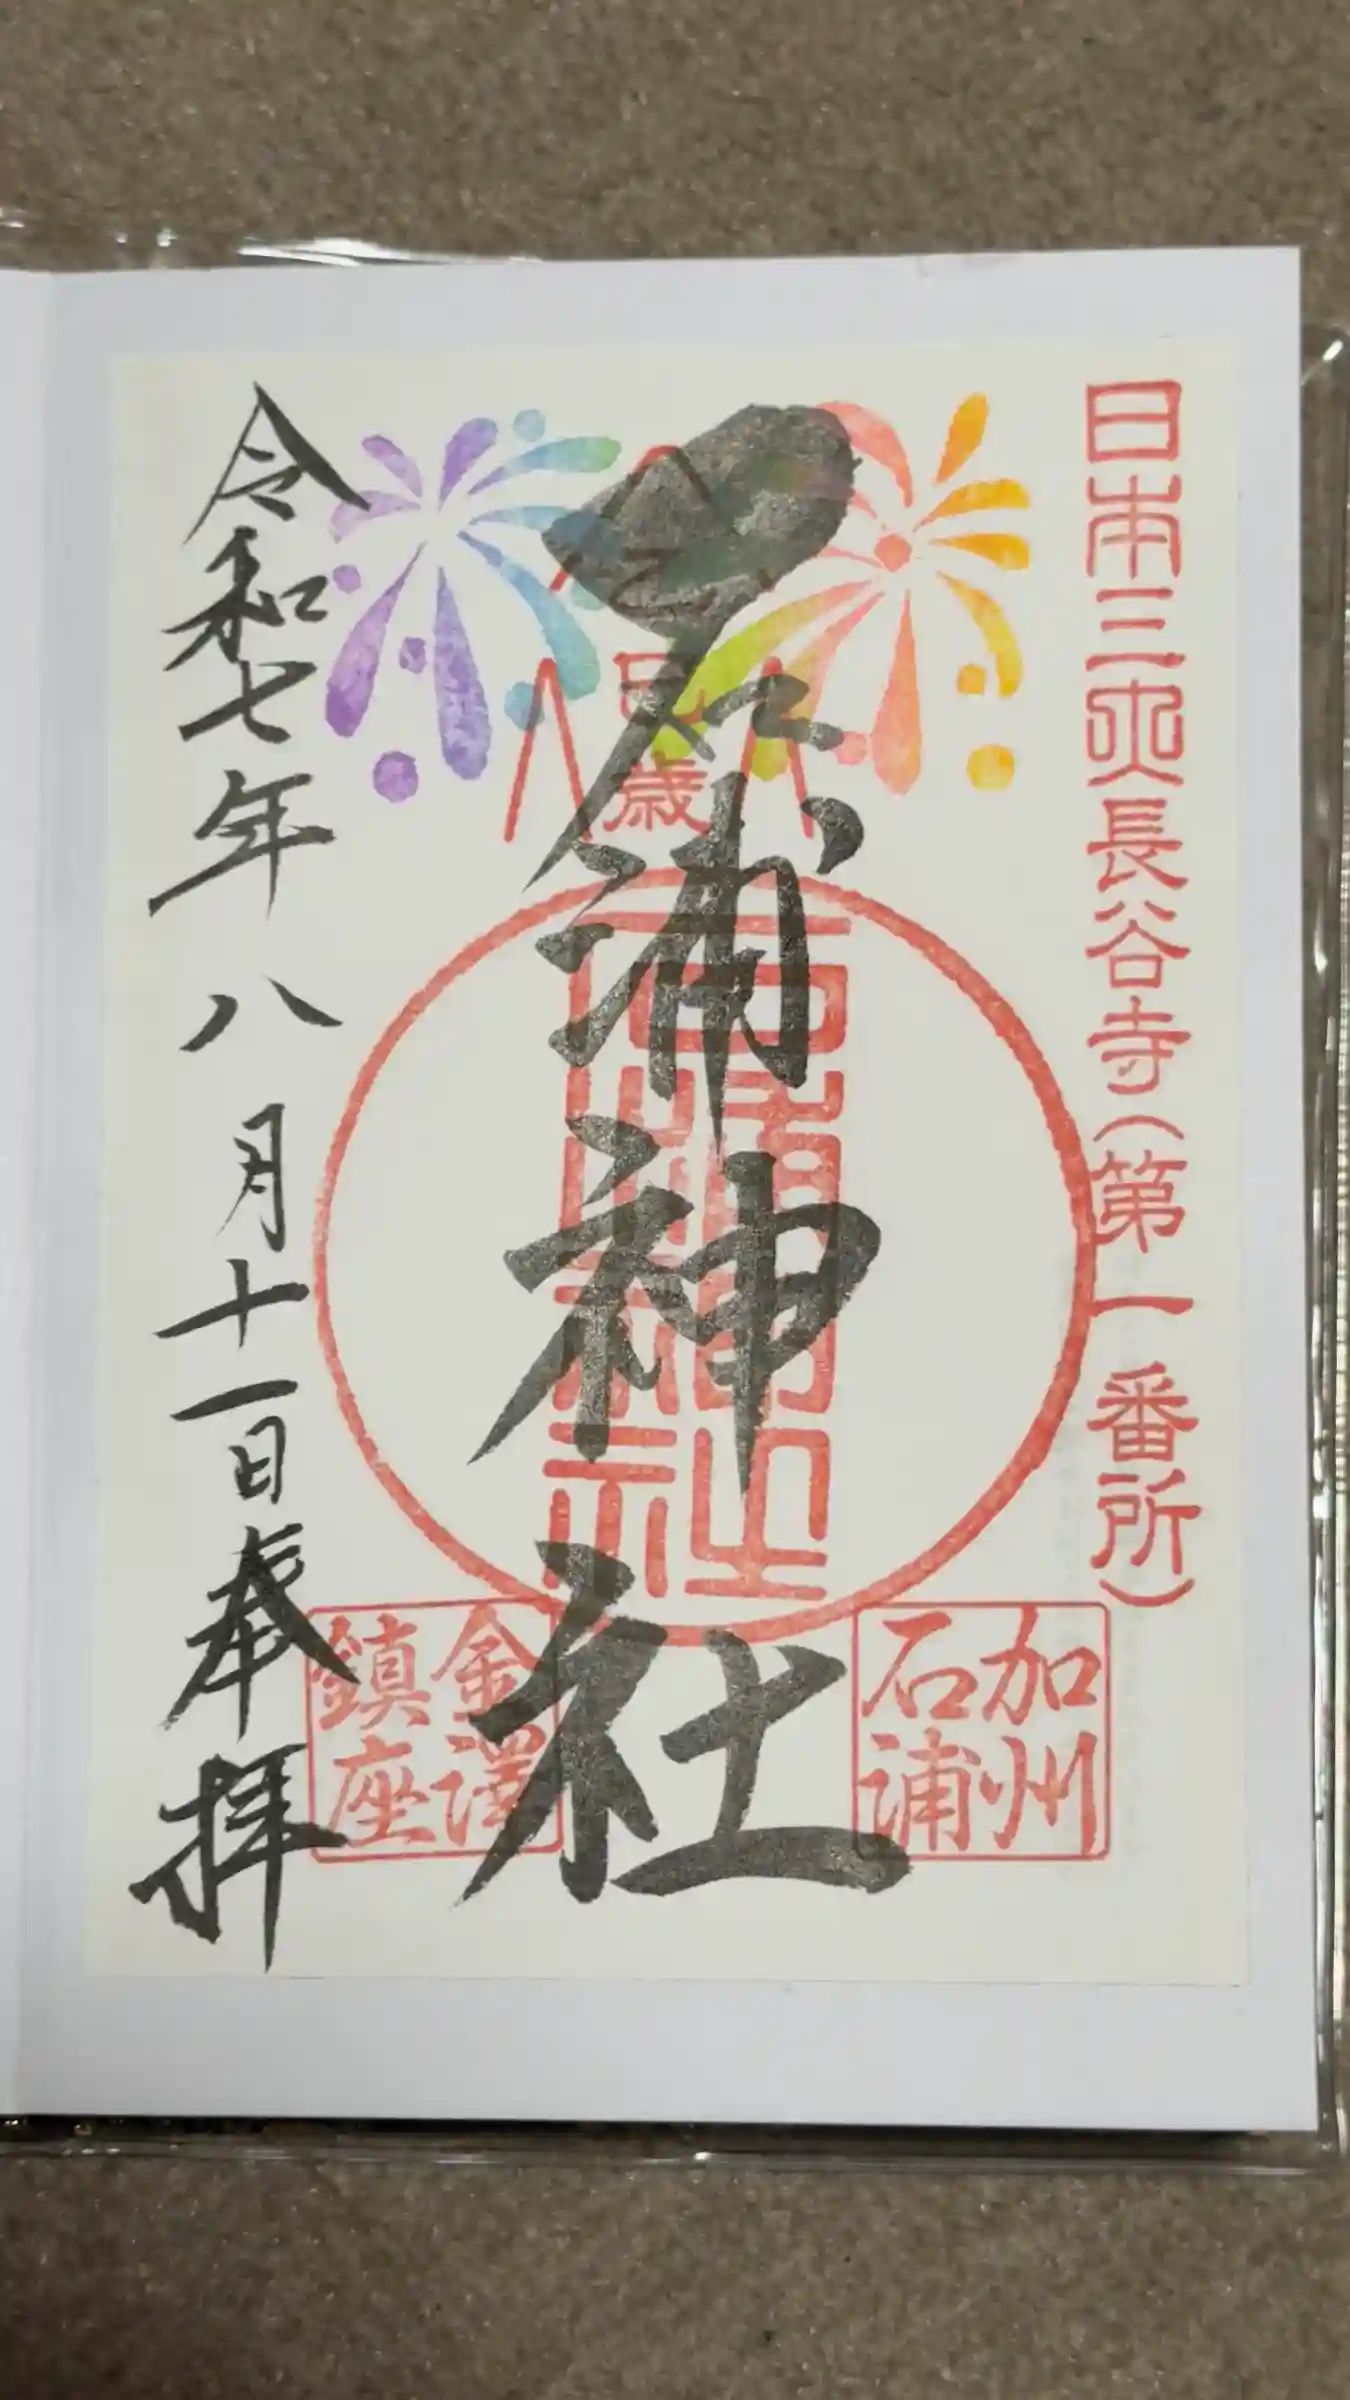 日本三央長谷寺(第一番所)
巳歳
石浦神社
石浦神社
加州
石浦
金澤
鎮座
令和七年八月十一日奉拝